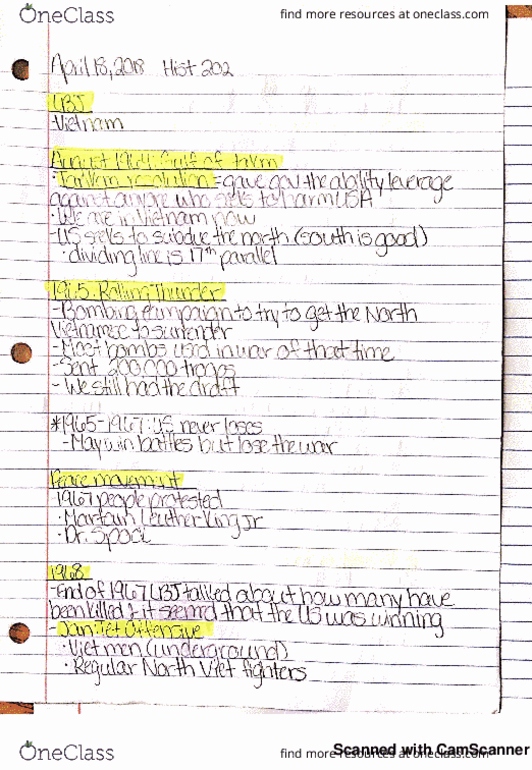 OneClass
find more resources at oneclass.com
April 18, 2018 Hist 202
LBJ
-Vietnam
August 1964: Gulf of
resolution = gave gov the ability leverage
against anyone who to harm USA
· We are in Vietnam now
-US to subdue the north (south is good)
· dividing line is 17th parallel
1965: Rolling Thunder
-Bombing campaign to try to get the North
Vietnamese to surrender
-Most bombs used in war of that time
-Sent 200,000 troops
- We still had the draft
*1965-1967: US never loses
-May win battles but lose the war
Peace movement
-1967 people protested
· Luther King Jr
· Dr. Spock
1968
-End of 1967 LBJ talked about how many have
been killed & it seemed that the US was winning
-Jan: Tet Offensive
· Viet men (underground)
· Regular North Viet fighters
OneClass
find more resources at oneclass.com
Scanned with CamScanner